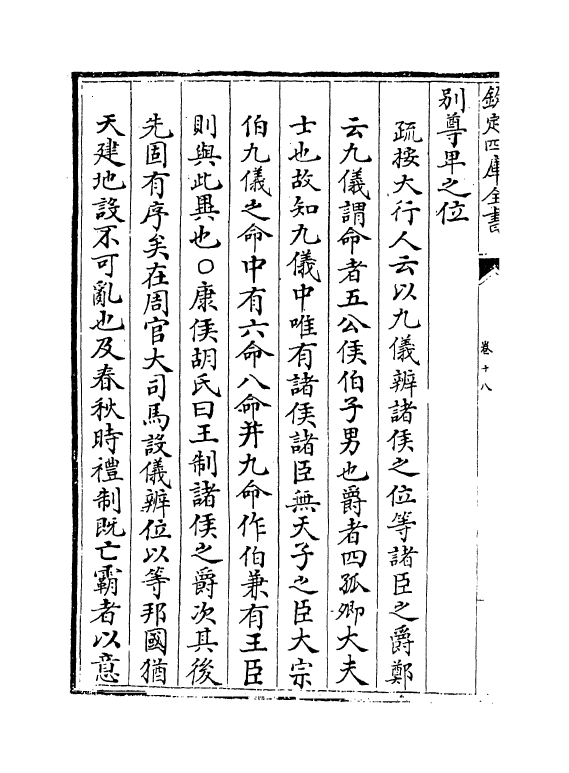 欽定四庫全書
卷十八
別尊卑之位
疏按大行人云以九儀辨諸侯之位等諸臣之爵鄭
云九儀謂命者五公侯伯子男也爵者四孤卿大夫
士也故知九儀中唯有諸侯諸臣無天子之臣大宗
伯九儀之命中有六命八命并九命作伯兼有王臣
則與此異也○康侯胡氏曰王制諸侯之爵次其後
先固有序矣在周官大司馬設儀辨位以等邦國猶
天建地設不可亂也及春秋時禮制既亡霸者以意